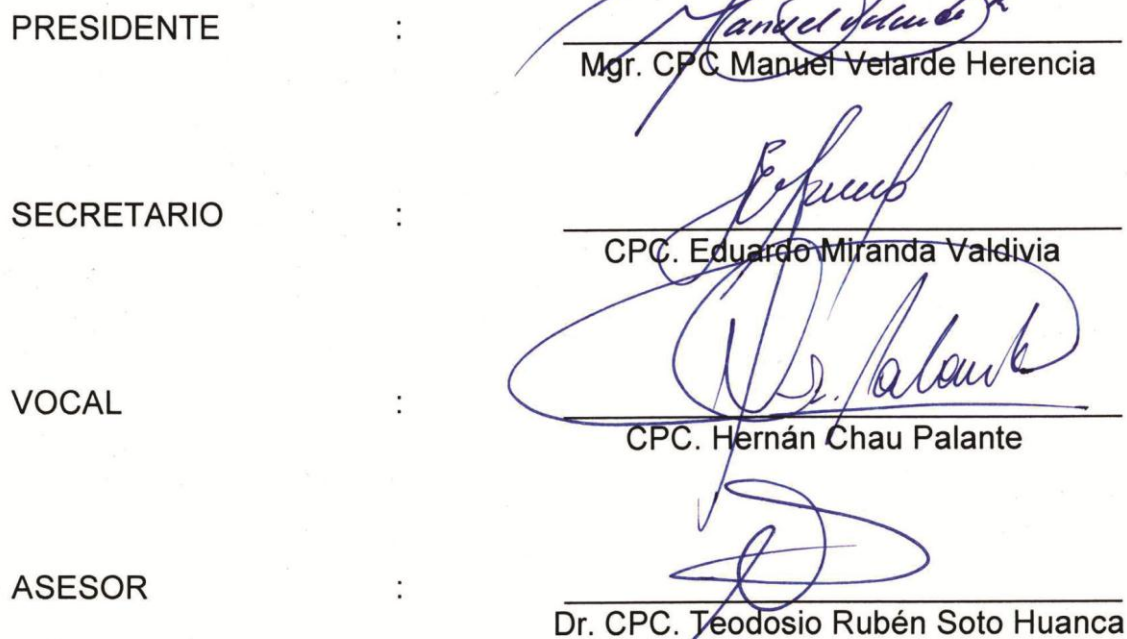 PRESIDENTE :
Mgr. CPC Manuel Velarde Herencia
SECRETARIO :
CPC. Eduardo Miranda Valdivia
VOCAL :
CPC. Hernán Chau Palante
ASESOR :
Dr. CPC. Teodosio Rubén Soto Huanca